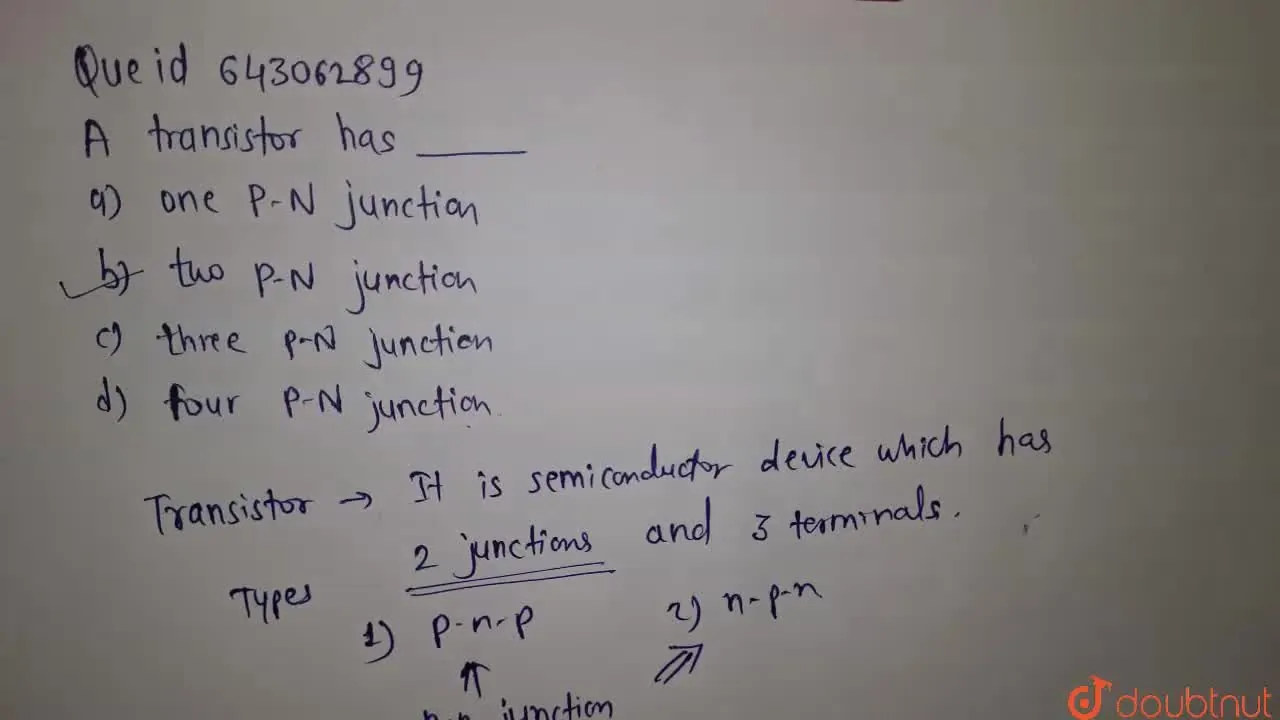 Que id 643062899
A transistor has _____
a) one P-N junction
b) two P-N junction
c) three P-N junction
d) four P-N junction.
Transistor → It is semiconductor device which has
2 junctions and 3 terminals.
Types
1) p-n-p
2) n-p-n
p-n junction
doubtnut